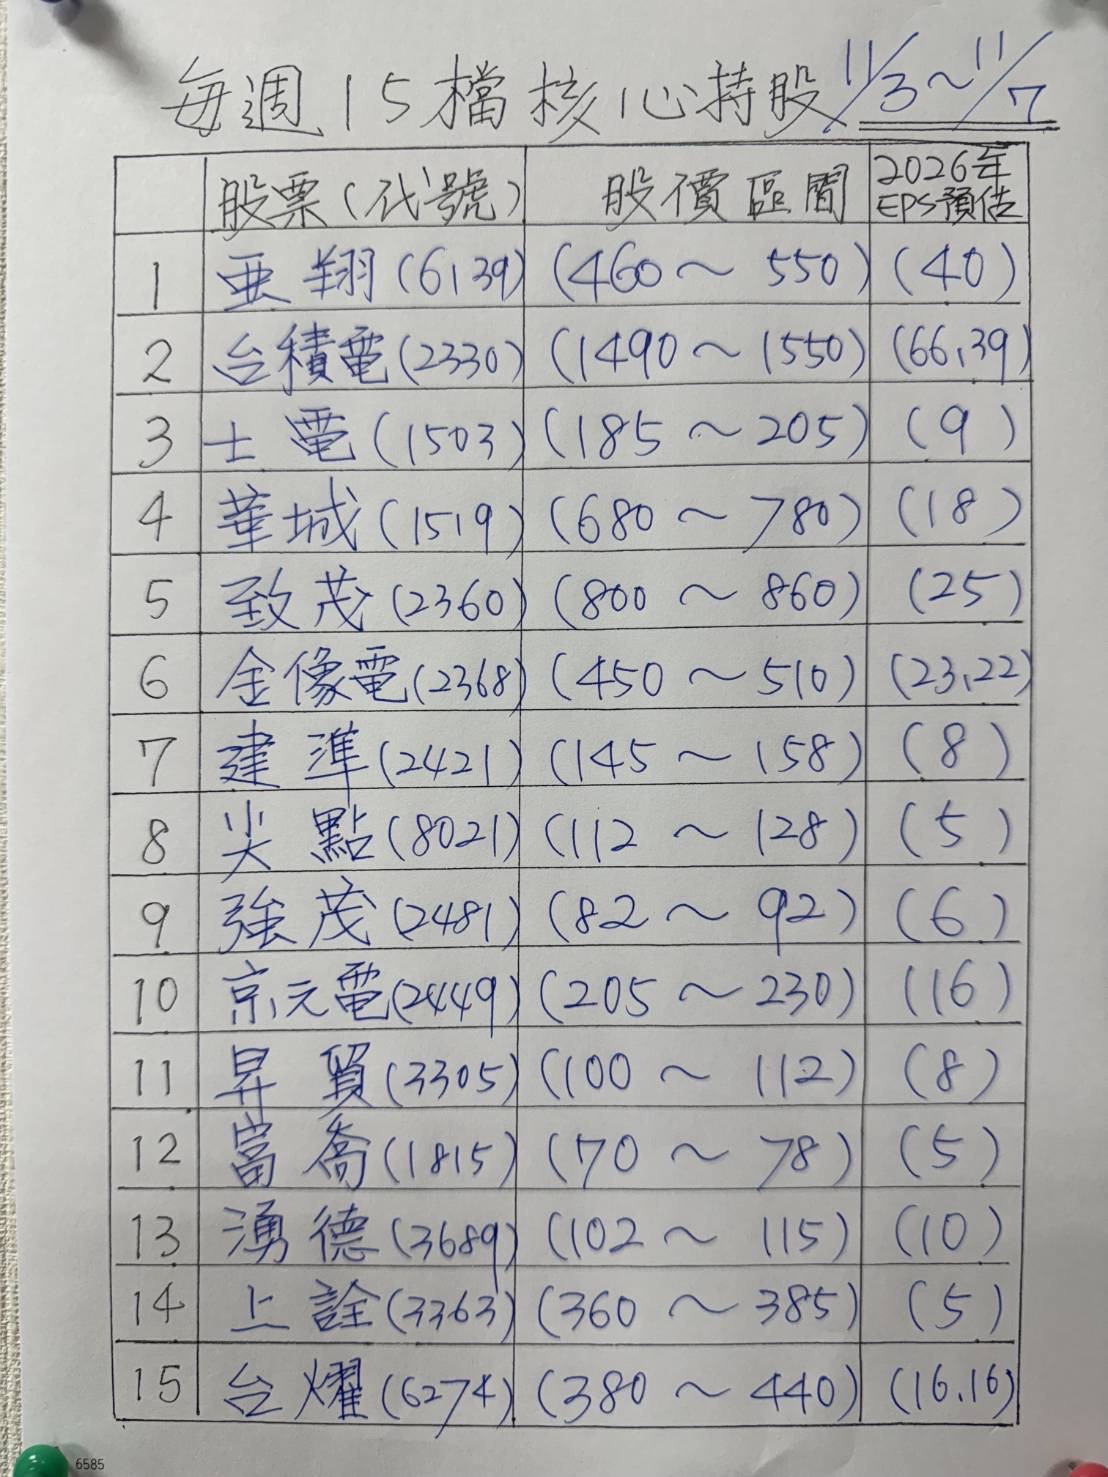 每週15檔核心持股 11/3~11/7
股票(代號) 股價區間 2026年EPS預估
1 亜翔(6139) (460~550) (40)
2 台積電(2330) (1490~1550) (66.39)
3 士電(1503) (185~205) (9)
4 華城(1519) (680~780) (18)
5 致茂(2360) (800~860) (25)
6 金像電(2368) (450~510) (23.22)
7 建準(2421) (145~158) (8)
8 尖點(8021) (112~128) (5)
9 強茂(2481) (82~92) (6)
10 京元電(2449) (205~230) (16)
11 昇貿(3305) (100~112) (8)
12 富喬(1815) (70~78) (5)
13 湧德(3689) (102~115) (10)
14 上詮(3363) (360~385) (5)
15 台燿(6274) (380~440) (16.16)
6585